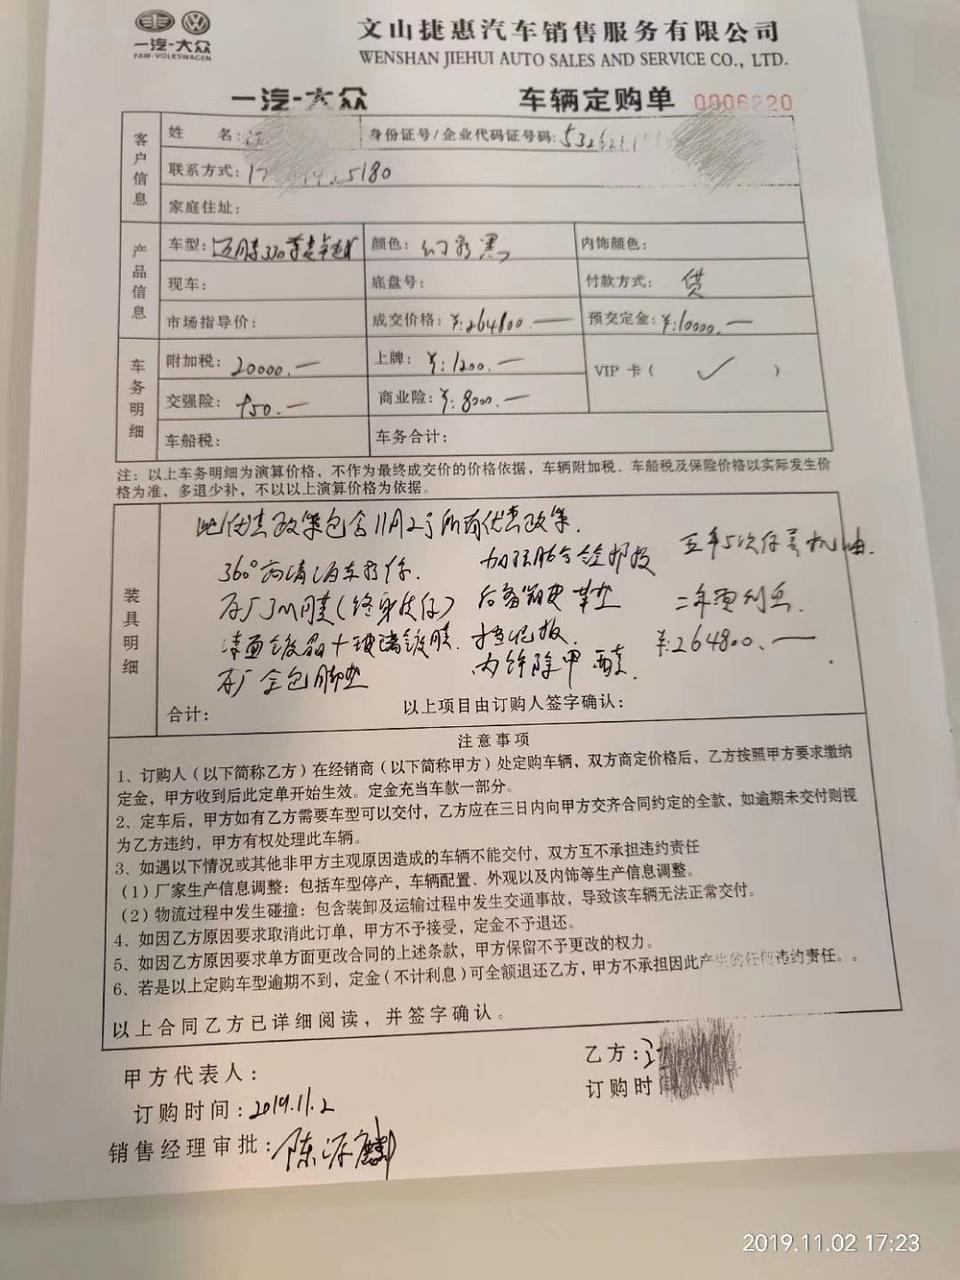 一汽-大众
FAW-VOLKSWAGEN
文山捷惠汽车销售服务有限公司
WENSHAN JIEHUI AUTO SALES AND SERVICE CO., LTD.
一汽-大众 车辆定购单 0006220
客户信息
姓 名: 身份证号/企业代码证号码:
联系方式: 5180
家庭住址:
产品信息
车型: 迈腾330 颜色: 幻影黑 内饰颜色:
现车: 底盘号: 付款方式: 贷
市场指导价: 成交价格: ¥:264800.— 预交定金: ¥:10000.—
车务明细
附加税: 20000.— 上牌: ¥:1200.— VIP 卡( ✓ )
交强险: 950.— 商业险: ¥:8000.—
车船税: 车务合计:
注: 以上车务明细为演算价格, 不作为最终成交价的价格依据, 车辆附加税、车船税及保险价格以实际发生价
格为准, 多退少补, 不以以上演算价格为依据。
装具明细
此优惠政策包含11月2号所有优惠政策.
360°高清 . 五年5次保养机油.
原厂3M膜(终身质保) 后备箱垫 二年
漆面镀晶+玻璃镀膜. 挡泥板. ¥:264800.—
原厂全包脚垫 内饰除甲醛.
合计: 以上项目由订购人签字确认:
注意事项
1、订购人(以下简称乙方)在经销商(以下简称甲方)处定购车辆, 双方商定价格后, 乙方按照甲方要求缴纳
定金, 甲方收到后此定单开始生效。定金充当车款一部分。
2、定车后, 甲方如有乙方需要车型可以交付, 乙方应在三日内向甲方交齐合同约定的全款, 如逾期未交付则视
为乙方违约, 甲方有权处理此车辆。
3、如遇以下情况或其他非甲方主观原因造成的车辆不能交付, 双方互不承担违约责任
(1)厂家生产信息调整: 包括车型停产, 车辆配置、外观以及内饰等生产信息调整。
(2)物流过程中发生碰撞: 包含装卸及运输过程中发生交通事故, 导致该车辆无法正常交付。
4、如因乙方原因要求取消此订单, 甲方不予接受, 定金不予退还。
5、如因乙方原因要求单方面更改合同的上述条款, 甲方保留不予更改的权力。
6、若是以上定购车型逾期不到, 定金(不计利息)可全额退还乙方, 甲方不承担因此产生的任何违约责任。。
以上合同乙方已详细阅读, 并签字确认。
甲方代表人: 乙方:
订购时间: 2019.11.2 订购时
销售经理审批: 陈源麟
2019.11.02 17:23